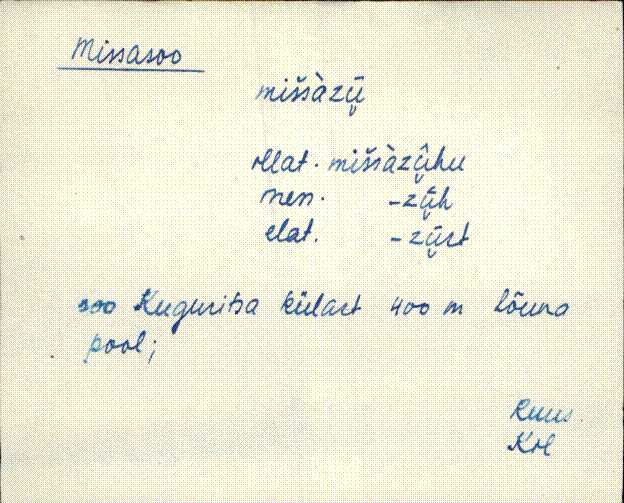 Missasoo
miššàzū̬
illat. miššàzū̬̂hu
inen. -zū̬h
elat. -zū̬st
soo Kuguritsa külast 400 m lõuna
pool;
Ruus.
Krl